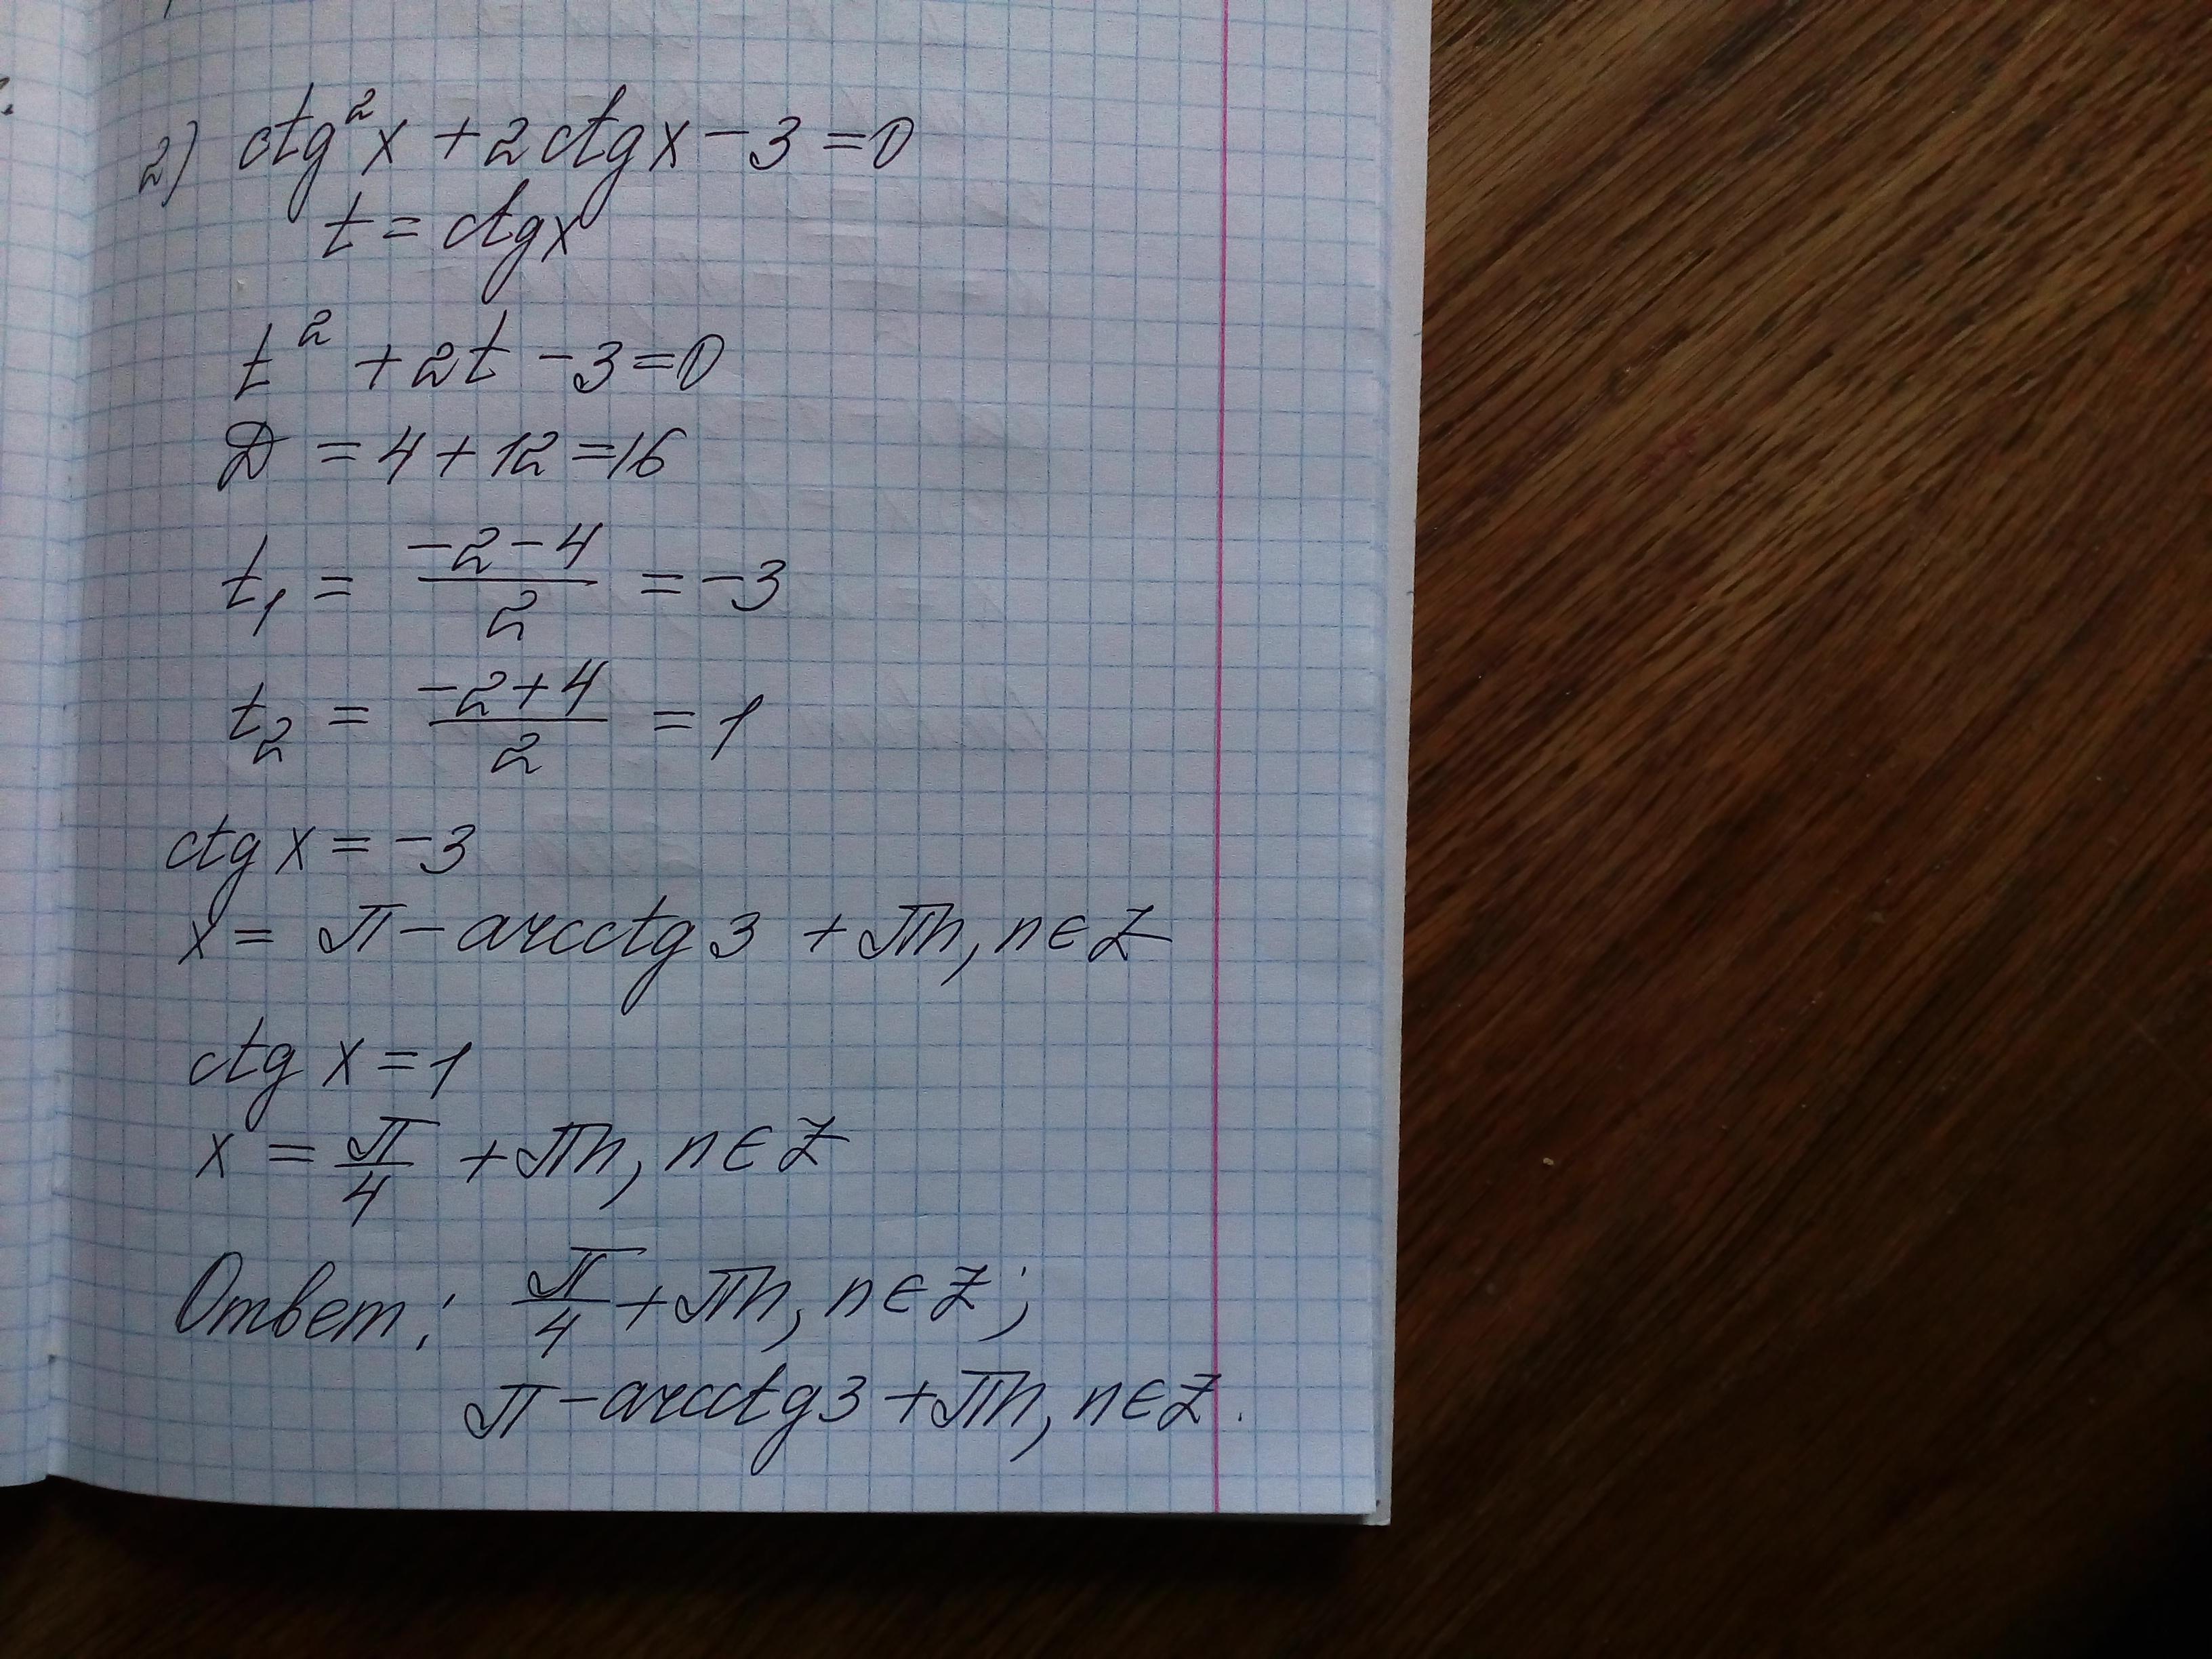 2) ctg²x + 2ctgx − 3 = 0
t = ctgx
t² + 2t − 3 = 0
D = 4 + 12 = 16
t₁ = (−2−4)/2 = −3
t₂ = (−2+4)/2 = 1
ctg x = −3
x = π − arcctg 3 + πn, n ∈ Z
ctg x = 1
x = π/4 + πn, n ∈ Z
Ответ: π/4 + πn, n ∈ Z;
π − arcctg 3 + πn, n ∈ Z.